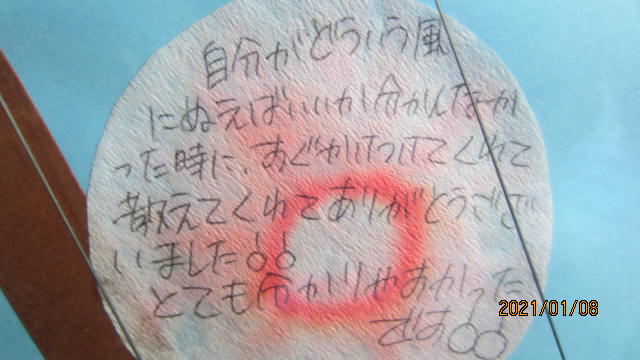 自分がどういう風
にぬえばいいか分かんなか
った時に、すぐかけつけてくれて
教えてくれてありがとうござ
いました!!
とても分かりやすかった
です!!
2021/01/08